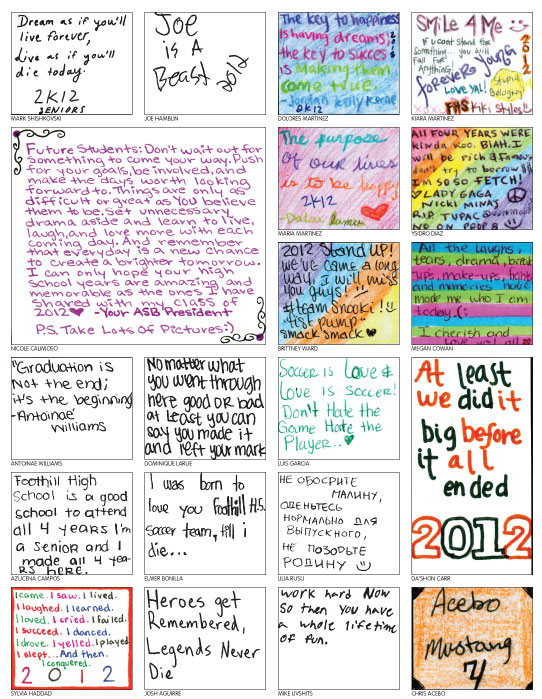 Dream as if you'll
live forever,
Live as if you'll
die today!
2K12
SENIORS
MARK SHISHKOVSKI
Joe
is A
Beast 2012
JOE HAMBLIN
The key to happiness
is having dreams;
the key to succes
is Making them
come true.
2012
DOLORES MARTINEZ
SMiLE 4 ME
If u cant stand for
something... you will
Fall For
Anything!
2012
forever young
Love ya!
Stupid
FHS
Styles
KIARA MARTINEZ
Future Students: Don't wait out for
something to come your way. Push
for your goals, be involved, and
make the days worth looking
forward to. Things are only as
difficult or great as you believe
them to be. Set unnecessary
drama aside and learn to live,
laugh, and love more with each
coming day. And remember
that everyday is a new chance
to create a brighter tomorrow.
I can only hope your high
school years are amazing and
memorable as the ones I have
shared with my class of
2012♥ -Your ASB President
P.S. Take Lots Of Pictures:)
NICOLE CALIMOSO
The purpose
of our lives
is to be happy
2K12
-Dalai Lama
MARIA MARTINEZ
All FOUR YEARS WERE
kinda koo. BLAH. I
will be rich & famous
don't try to borrow $!
I'M SO SO FETCH!
♡ LADY GAGA
NICKI MINAJ
R.I.P. TUPAC
YSIDRO DIAZ
2012 Stand UP!
We've come a long
way, I will miss
you guys!
#team snooki!
fist pump
smack smack ♥
BRITTNEY WARD
All the laughs,
tears, drama, break
-ups, make-ups, fights
and memories have
made me who I am
today. (:
I cherish and
MEGAN COWAN
"Graduation is
Not the end;
it's the beginning
-Antoinae
Williams
ANTONAE WILLIAMS
No matter what
you went through
here good or bad
at least you can
say you made it
and left your mark
DOMINIQUE LARUE
Soccer is Love &
Love is Soccer!
Don't Hate the
Game Hate the
Player..♥
LUIS GARCIA
At least
we did it
big before
it all
ended
2012
DA'SHON CARR
Foothill High
School is a good
school to attend
all 4 years I'm
a senior and I
made all 4 yea-
rs here.
AZUCENA CAMPOS
I was born to
love you Foothill H.S.
soccer team, till i
die...
ELMER BONILLA
НЕ ОБОСРИТЕ
МАЛИНУ,
ОЦЕНЬТЕСЬ
НОРМАЛЬНО ДЛЯ
ВЫПУСКНОГО,
НЕ ПОЗОРЬТЕ
РОДИНУ
LILIA RUSU
I came. I saw. I lived.
I laughed. I learned.
I loved. I cried. I failed.
I succeed. I danced.
I drove. I yelled. I played
I slept... And then.
I conquered.
2 0 1 2
SYLVIA HADDAD
Heroes get
Remembered,
Legends Never
Die
JOSH AGUIRRE
work hard Now
So then you have
a whole lifetime
of fun.
MIKE LIVSHITS
Acebo
Mustang
4
CHRIS ACEBO